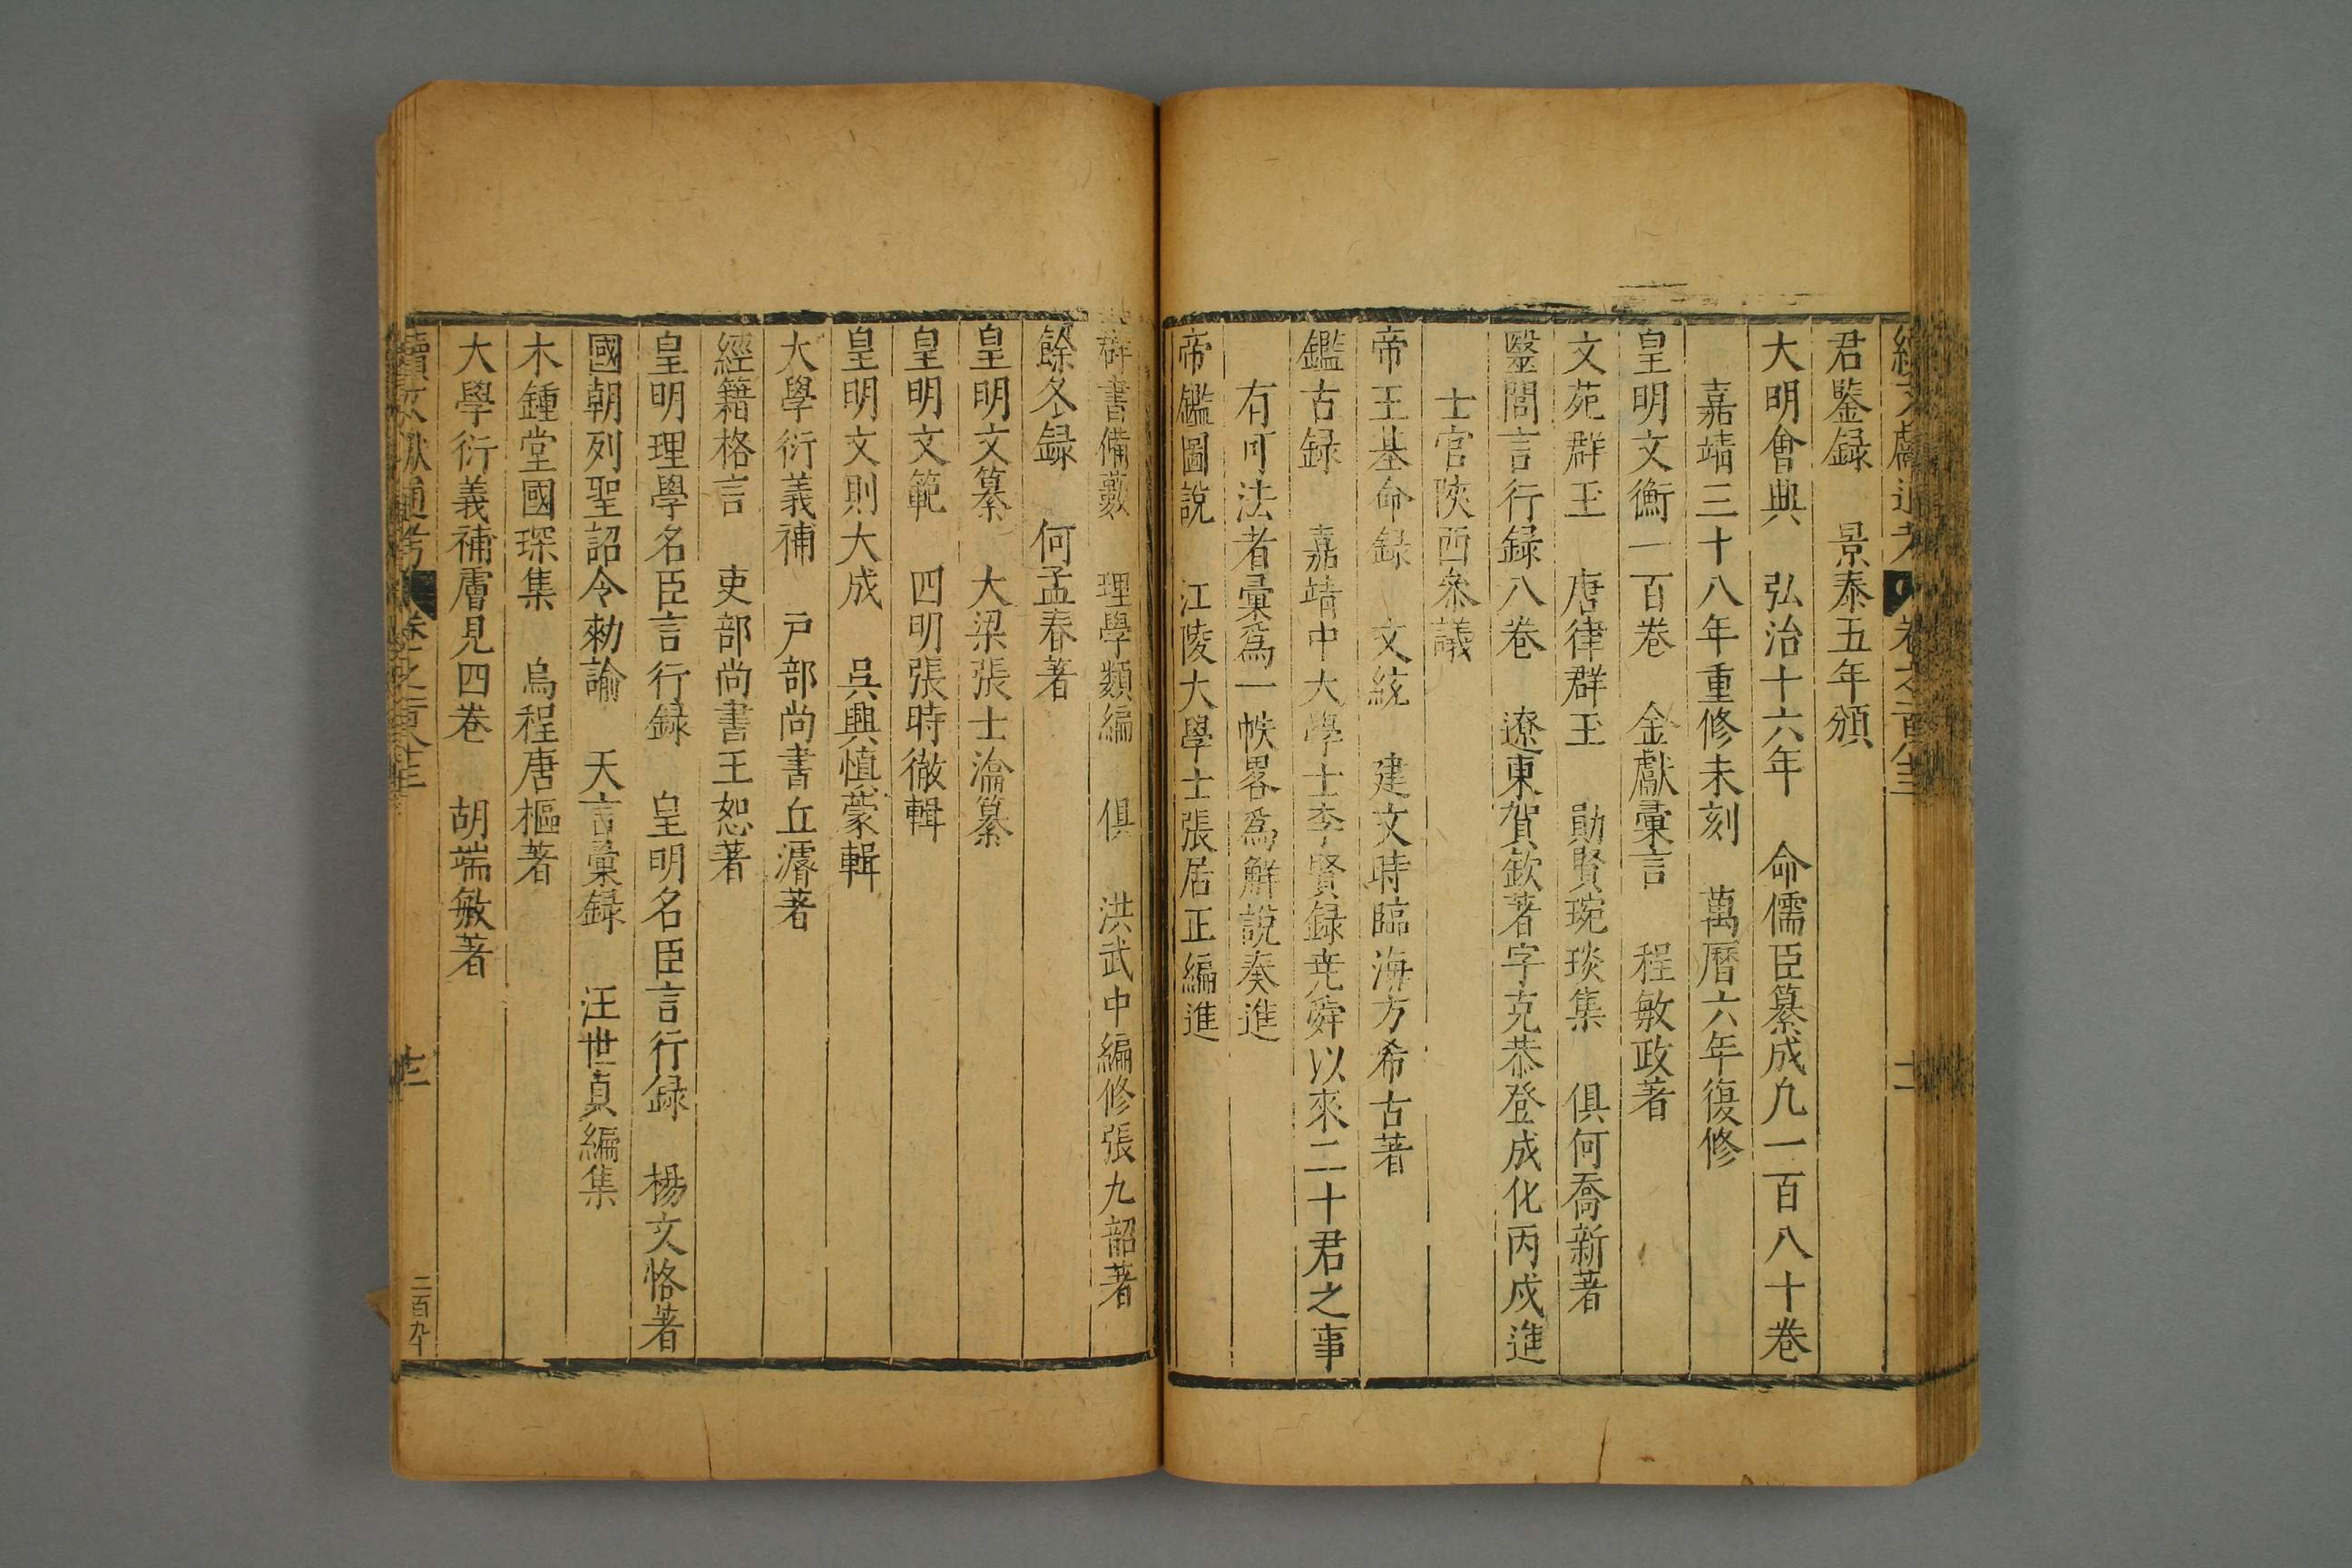 君鑒録　景泰五年頒
大明會典　弘治十六年　命儒臣纂成凢一百八十卷
嘉靖三十八年重修未刻　萬曆六年復修
皇明文衡一百卷　金獻彙言　程敏政著
文苑群玉　唐律群玉　勛賢琬琰集　俱何喬新著
醫閭言行録八卷　遼東賀欽著字克恭登成化丙戍進
士官陝西叅議
帝王基命録　文統　建文時臨海方希古著
鑑古録　嘉靖中大學士李賢録尭舜以來二十君之事
有可法者彙爲一帙畧爲觧說奏進
帝鑑圖說　江陵大學士張居正編進
群書備數　理學類編　俱　洪武中編修張九韶著
餘冬録　何孟春著
皇明文纂　大梁張士瀹纂
皇明文範　四明張時徹輯
皇明文則大成　吳興慎蒙輯
大學衍義補　戸部尚書丘濬著
經籍格言　吏部尚書王恕著
皇明理學名臣言行録　皇明名臣言行録　楊文恪著
國朝列聖詔令勑諭　天言彙録　汪世貞編集
木鍾堂國琛集　烏程唐樞著
大學衍義補膚見四卷　胡端敏著
續文獻通考
二百九十